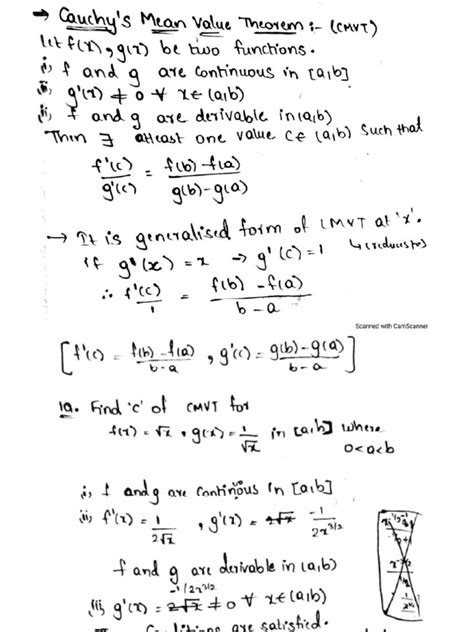 → Cauchy's Mean Value Theorem :- (CMVT)
let f(x), g(x) be two functions.
i, f and g are continuous in [a,b]
ii, g'(x) ≠ 0 ∀ x∈(a,b)
iii, f and g are derivable in (a,b)
Then ∃ atleast one value C∈(a,b) such that
f'(c)/g'(c) = f(b)-f(a)/g(b)-g(a)
→ It is generalised form of LMVT at 'x'.
↳(reduces to)
if g'(x) = x → g'(c) = 1
∴ f'(c)/1 = f(b)-f(a)/b-a
Scanned with CamScanner
[f'(c) = f(b)-f(a)/b-a , g'(c) = g(b)-g(a)/b-a]
1Q. Find 'c' of CMVT for
f(x) = √x, g(x) = 1/√x in [a,b] where
0<a<b
i, f and g are continous in [a,b]
ii, f'(x) = 1/2√x , g'(x) = -1/2x^3/2
f and g are derivable in (a,b)
iii, g'(x) = -1/2x^3/2 ≠ 0 ∀ x∈(a,b)
are satisfied.